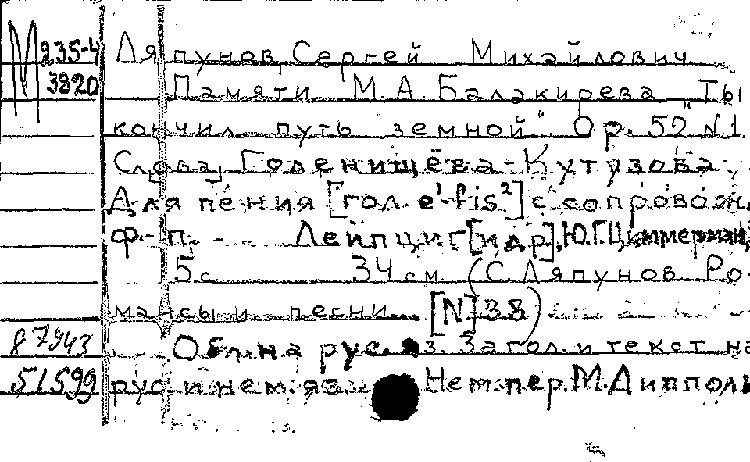 М 235-4 Ляпунов, Сергей Михайлович
3820 Памяти М.А. Балакирева "Ты
кончил путь земной" Op. 59 N1.
Слова Голенищева-Кутузова.
Для пения [гол. e¹-fis²] с сопровожд.
ф-п. Лейпциг [и др], Ю.Г. Циммерман,
5 с. 34 см. (С. Ляпунов. Ро-
мансы и песни. [N] 38)
87943 Обл. на рус. яз. Загол. и текст на
51599 рус. и нем. яз. Нем. пер. М. Дипполь